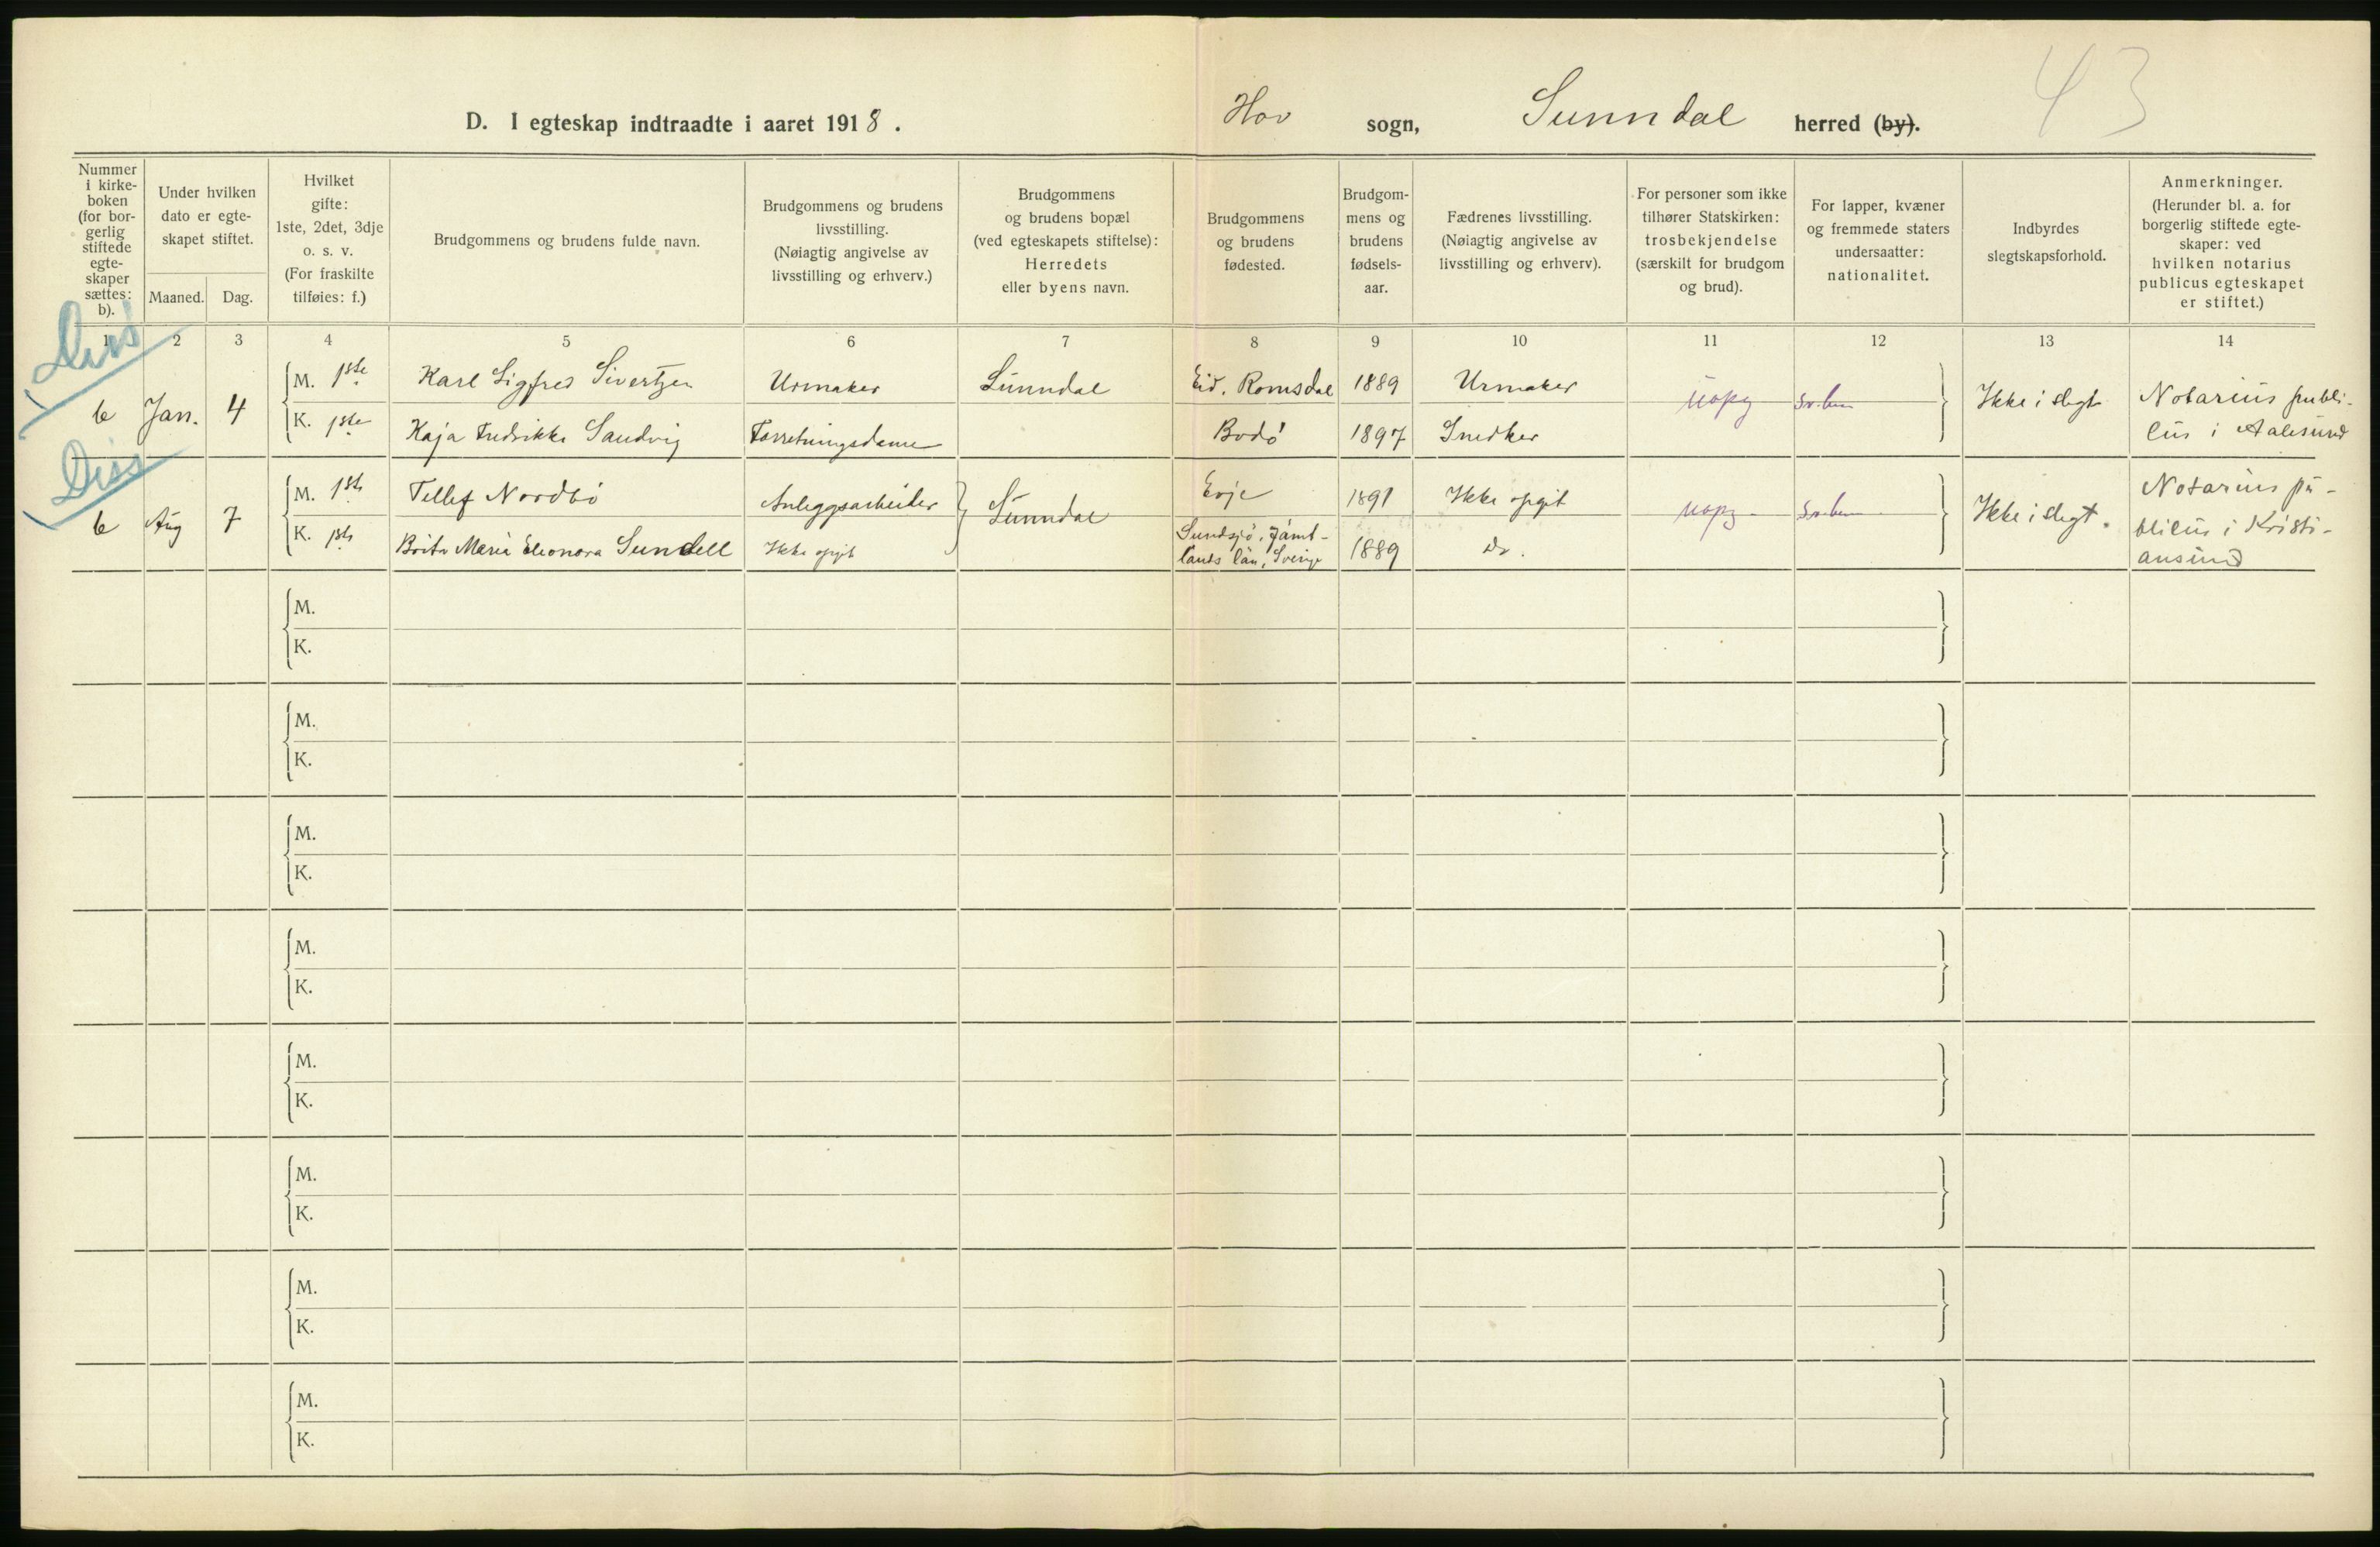 43
D. I egteskap indtraadte i aaret 1918.
Hov sogn, Sunndal herred (by).
Nummer
i kirke-
boken
(for bor-
gerlig
stiftede
egte-
skaper
sættes:
b).
Under hvilken
dato er egte-
skapet stiftet.
Maaned. Dag.
Hvilket
gifte:
1ste, 2det, 3dje
o. s. v.
(For fraskilte
tilføies: f.)
Brudgommens og brudens fulde navn.
Brudgommens og brudens
livsstilling.
(Nøiagtig angivelse av
livsstilling og erhverv.)
Brudgommens
og brudens bopæl
(ved egteskapets stiftelse):
Herredets
eller byens navn.
Brudgommens
og brudens
fødested.
Brudgom-
mens og
brudens
fødsels-
aar.
Fædrenes livsstilling.
(Nøiagtig angivelse av
livsstilling og erhverv).
For personer som ikke
tilhører Statskirken:
trosbekjendelse
(særskilt for brudgom
og brud).
For lapper, kvæner
og fremmede staters
undersaatter:
nationalitet.
Indbyrdes
slegtskapsforhold.
Anmerkninger.
(Herunder bl. a. for
borgerlig stiftede egte-
skaper: ved
hvilken notarius
publicus egteskapet
er stiftet.)
1 2 3 4 5 6 7 8 9 10 11 12 13 14
Diss
b Jan. 4
M. 1ste Karl Sigfred Sivertzen Urmaker Sunndal Eid. Romsdal 1889 Urmaker
K. 1ste Kaja Fredrikke Sandvig Forretningsdame Bodö 1897 Snedker
uopg Ikke i slegt
Notarius publi-
cus i Aalesund
Diss
b Aug 7
M. 1ste Tellef Nordbö Anleggsarbeider Sunndal Evje 1891 Ikke opgit
K. 1ste Brita Maria Eleonora Sundell Ikke opgit Sundsjö, Jämt-
lands län, Sverige 1889 Do.
uopg Ikke i slegt.
Notarius pu-
blicus i Kristi-
ansund
M.
K.
M.
K.
M.
K.
M.
K.
M.
K.
M.
K.
M.
K.
M.
K.